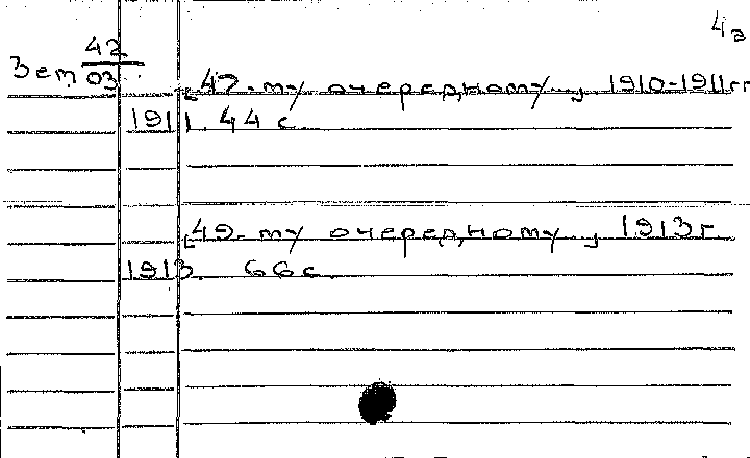 4а
Зем 42
03
[47-му очередному..., 1910-1911гг
1911. 44 с.
[49-му очередному..., 1913г
1913. 66с.